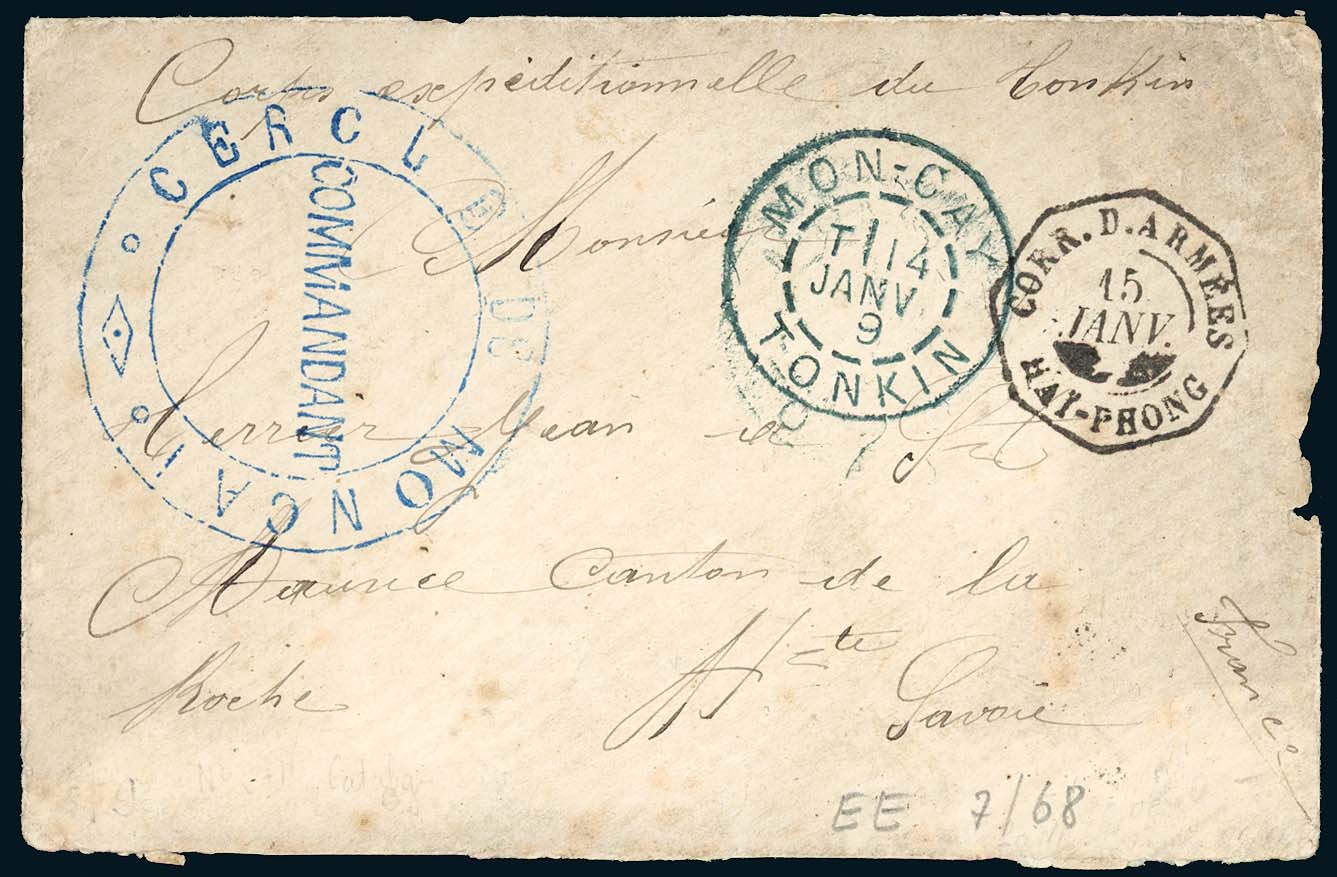 Corps expéditionnelle du Tonkin
CERCLE DE MONCAI
COMMANDANT
MON-CAY
14
JANV.
9
TONKIN
CORR. D. ARMÉES
15
JANV.
HAI-PHONG
Monsieur
Jean a St
Maurice Canton de la
Roche Hte Savoie
France
EE 7/68